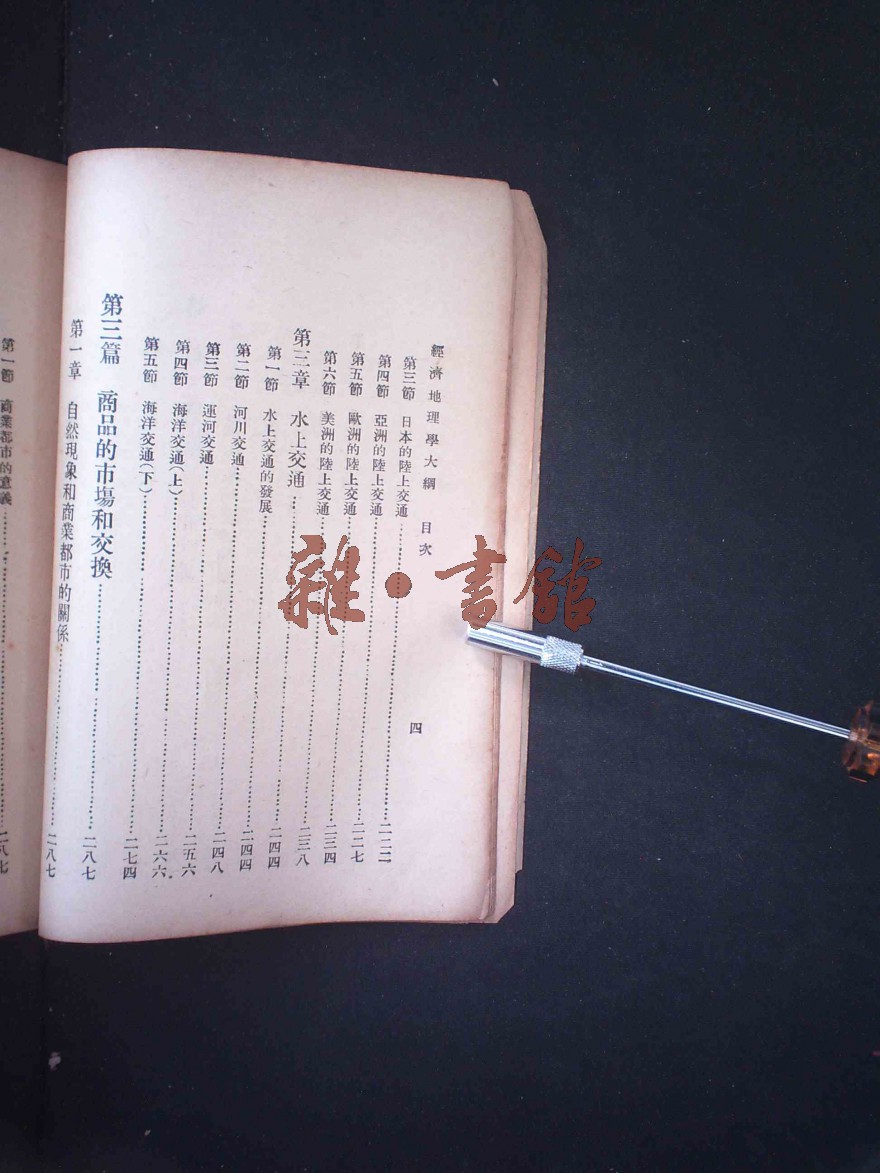 經濟地理學大綱 目次
四
第三節 日本的陸上交通……二二二
第四節 亞洲的陸上交通……二二七
第五節 歐洲的陸上交通……二三四
第六節 美洲的陸上交通……二三八
第三章 水上交通……二四四
第一節 水上交通的發展……二四四
第二節 河川交通……二四八
第三節 運河交通……二五六
第四節 海洋交通(上)……二六六
第五節 海洋交通(下)……二七四
第三篇 商品的市場和交換……二八七
第一章 自然現象和商業都市的關係……二八七
第一節 商業都市的意義……二八七
雜·書館